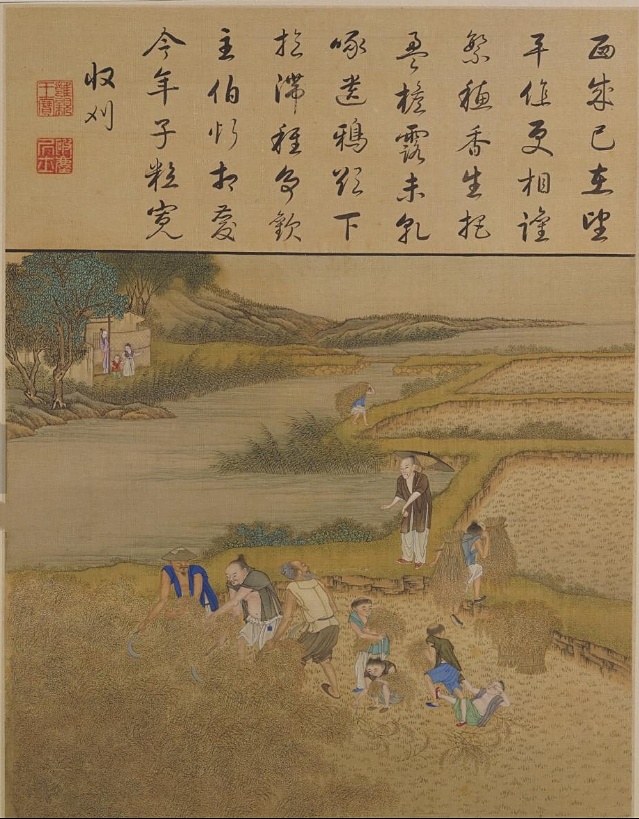 西成已在望
早作更相讙
繁穗香生把
盈擔露未乾
啄遺鴉欲下
拾滯稚爭歡
主伯忻相慶
今年子粒寬
收刈
雍親王寶
破塵居士